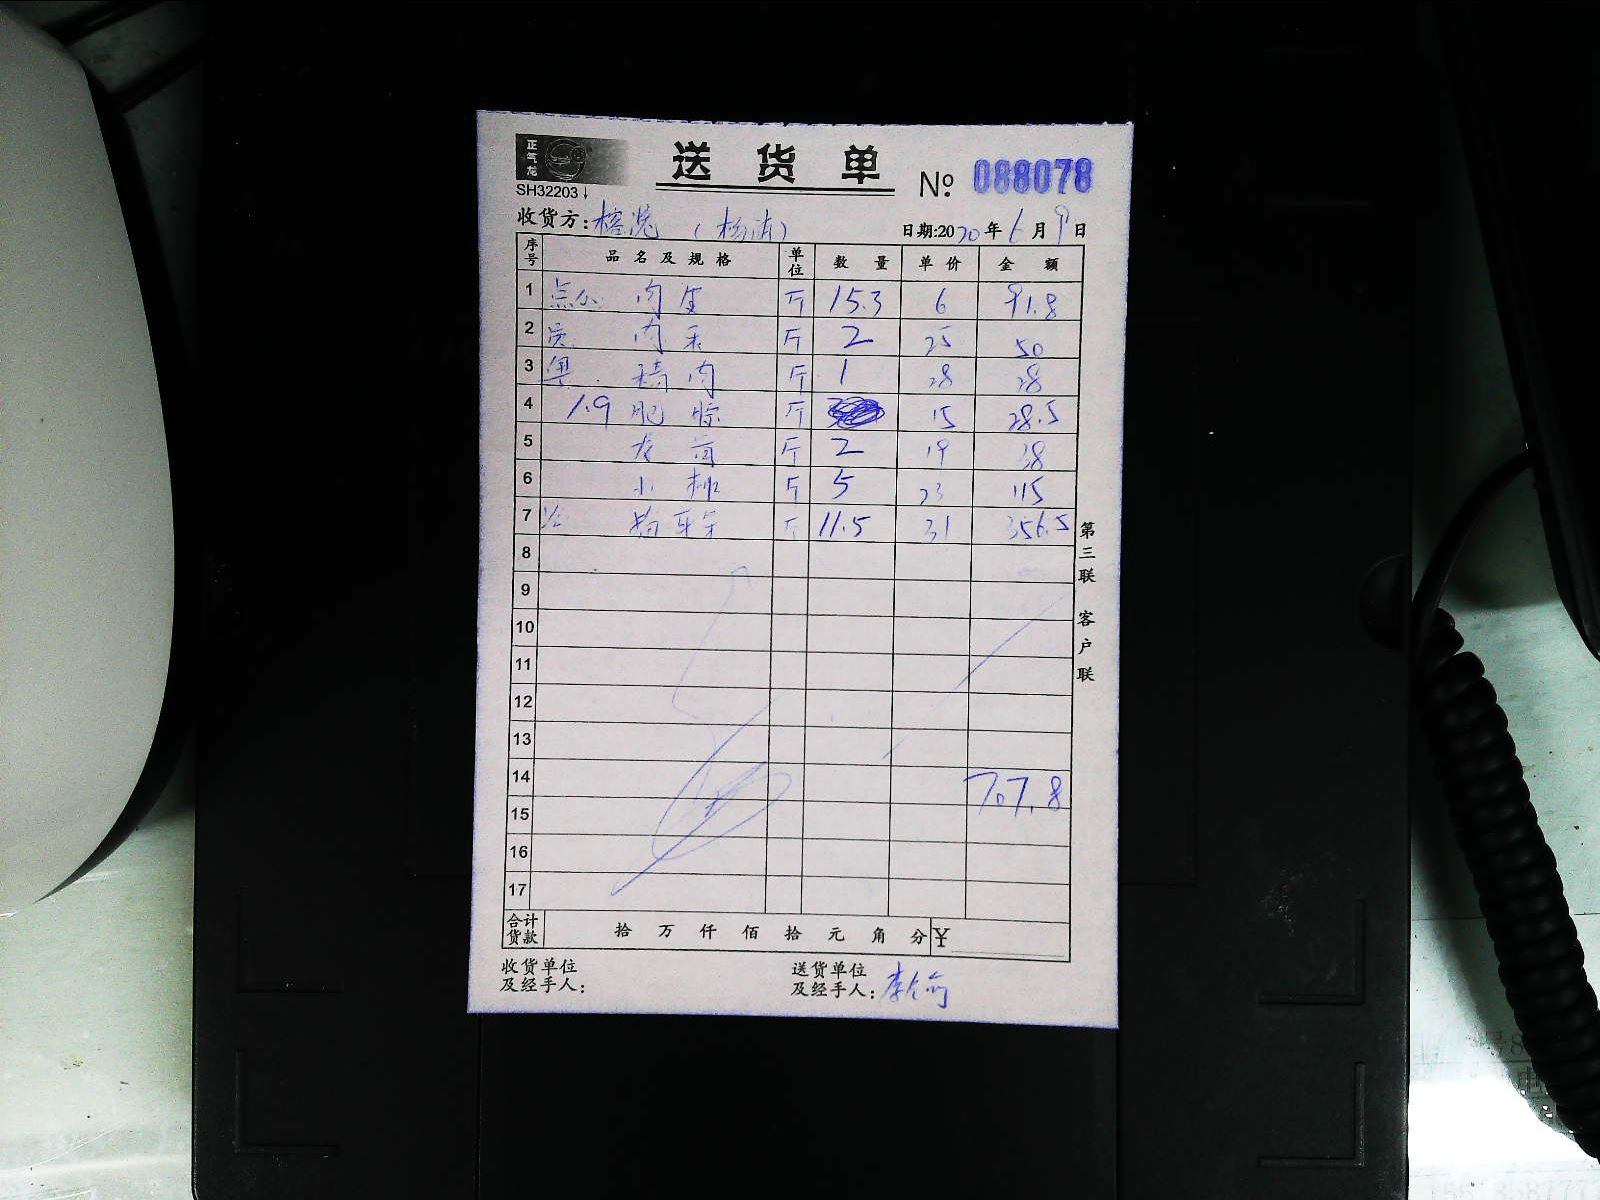 正气龙
送货单
SH32203↓
№ 088078
收货方:
日期:2020年6月9日
序号 品名及规格 单位 数量 单价 金额
1 点心 肉皮 斤 15.3 6 91.8
2 肉 斤 2 25 50
3 粤 精肉 斤 1 28 28
4 1.9 肥膘 斤 15 28.5
5 斤 2 19 38
6 小排 斤 5 23 115
7 斤 11.5 31 356.5
8
9
10
11
12
13
14 707.8
15
16
17
合计货款 拾万仟佰拾元角分 ¥
第三联 客户联
收货单位 送货单位
及经手人: 及经手人: